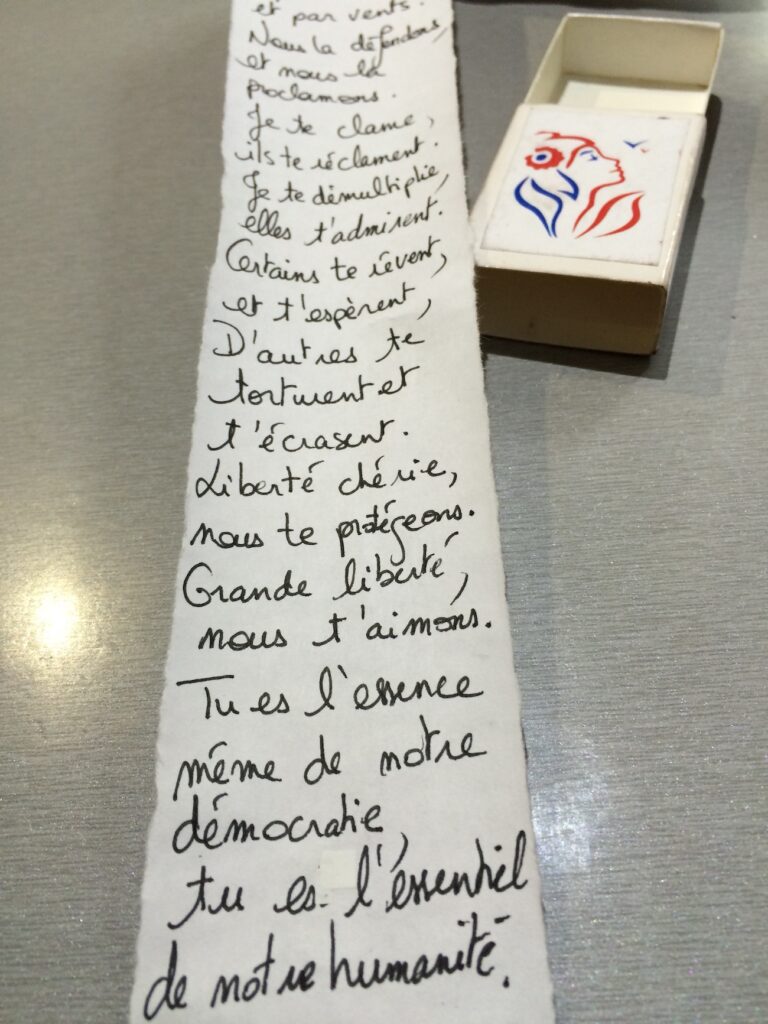 et par vents.
Nous la défendons,
et nous la
proclamons.
Je te clame,
ils te réclament.
Je te démultiplie,
elles t'admirent.
Certains te rêvent,
et t'espèrent,
D'autres te
torturent et
t'écrasent.
Liberté chérie,
nous te protégeons.
Grande liberté,
nous t'aimons.
Tu es l'essence
même de notre
démocratie,
tu es l'essentiel
de notre humanité.